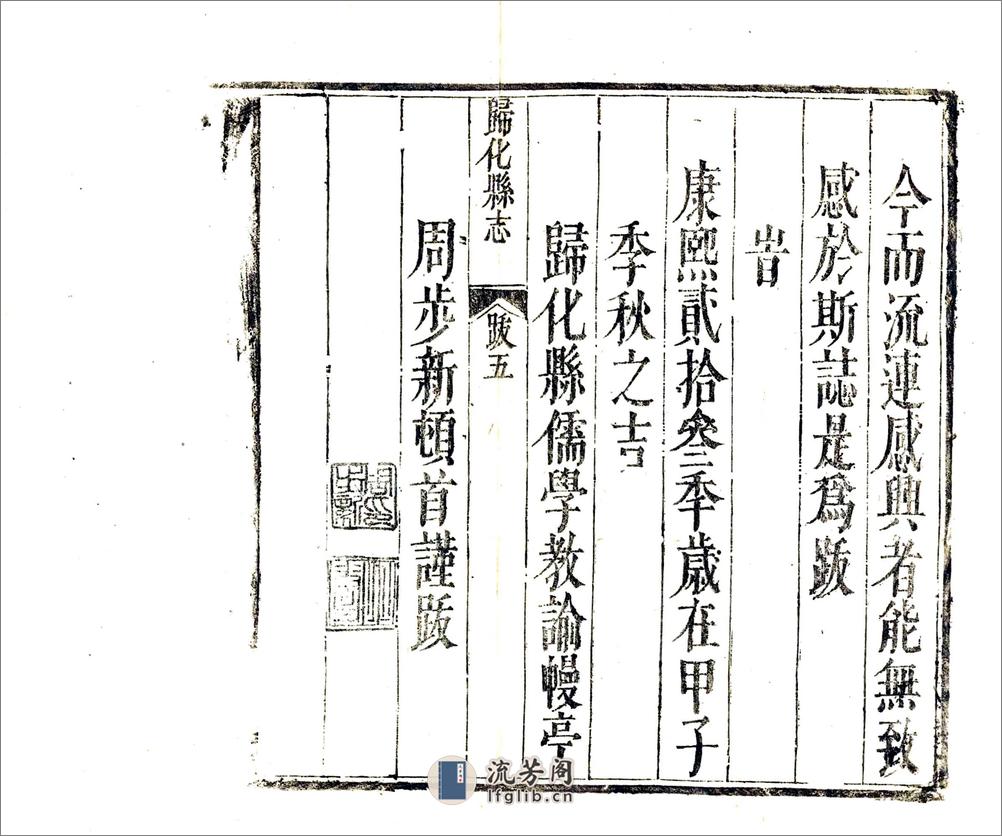 今而流連感興者能無致
感於斯誌是爲跋
旹
康熙貳拾叁季歲在甲子
季秋之吉
歸化縣儒學教諭幔亭
歸化縣志
跋五
周步新頓首謹跋
流芳阁
lfglib.cn